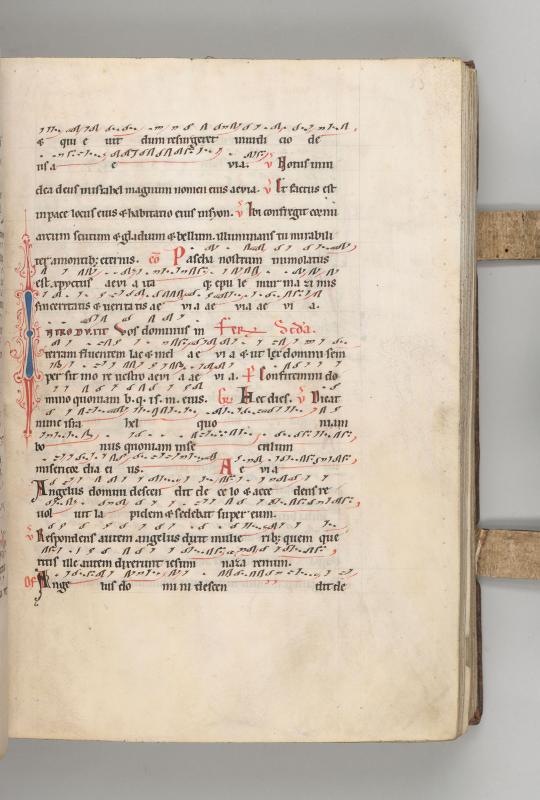 & qui e uit dum resurgeret in iudi cio de
us a e via. v Notus in iu
dea deus in israhel magnum nomen eius aevia. v Et factus est
in pace locus eius & habitatio eius in syon. v Ibi confregit cornu
arcum scutum & gladium & bellum. illuminans tu mirabili
ter a montib; eternis. co Pascha nostrum immolatus
est. xpyctus aevi a ita q; epu le mur in a zi mis
sinceritatis & veritatis ae vi a ae via ae vi a.
INTRODUXIT vos dominus in fer scda.
terram fluentem lac & mel ae vi a & ut lex domini sem
per sit in o re vestro aevi a ae vi a. P Confitemini do
mino quoniam b. q. i s. m. eius. Gr Hec dies. v Dicat
nunc isra hel quo niam
bo nus quoniam in se culum
misericor dia ei us. A e via
Angelus domini descen dit de ce lo & acce dens re
uol uit la pidem & sedebat super eum.
v Respondens autem angelus dixit mulie rib; quem que
ritis ille autem dixerunt iesum naza renum.
OF Ange lus do mi ni descen dit de